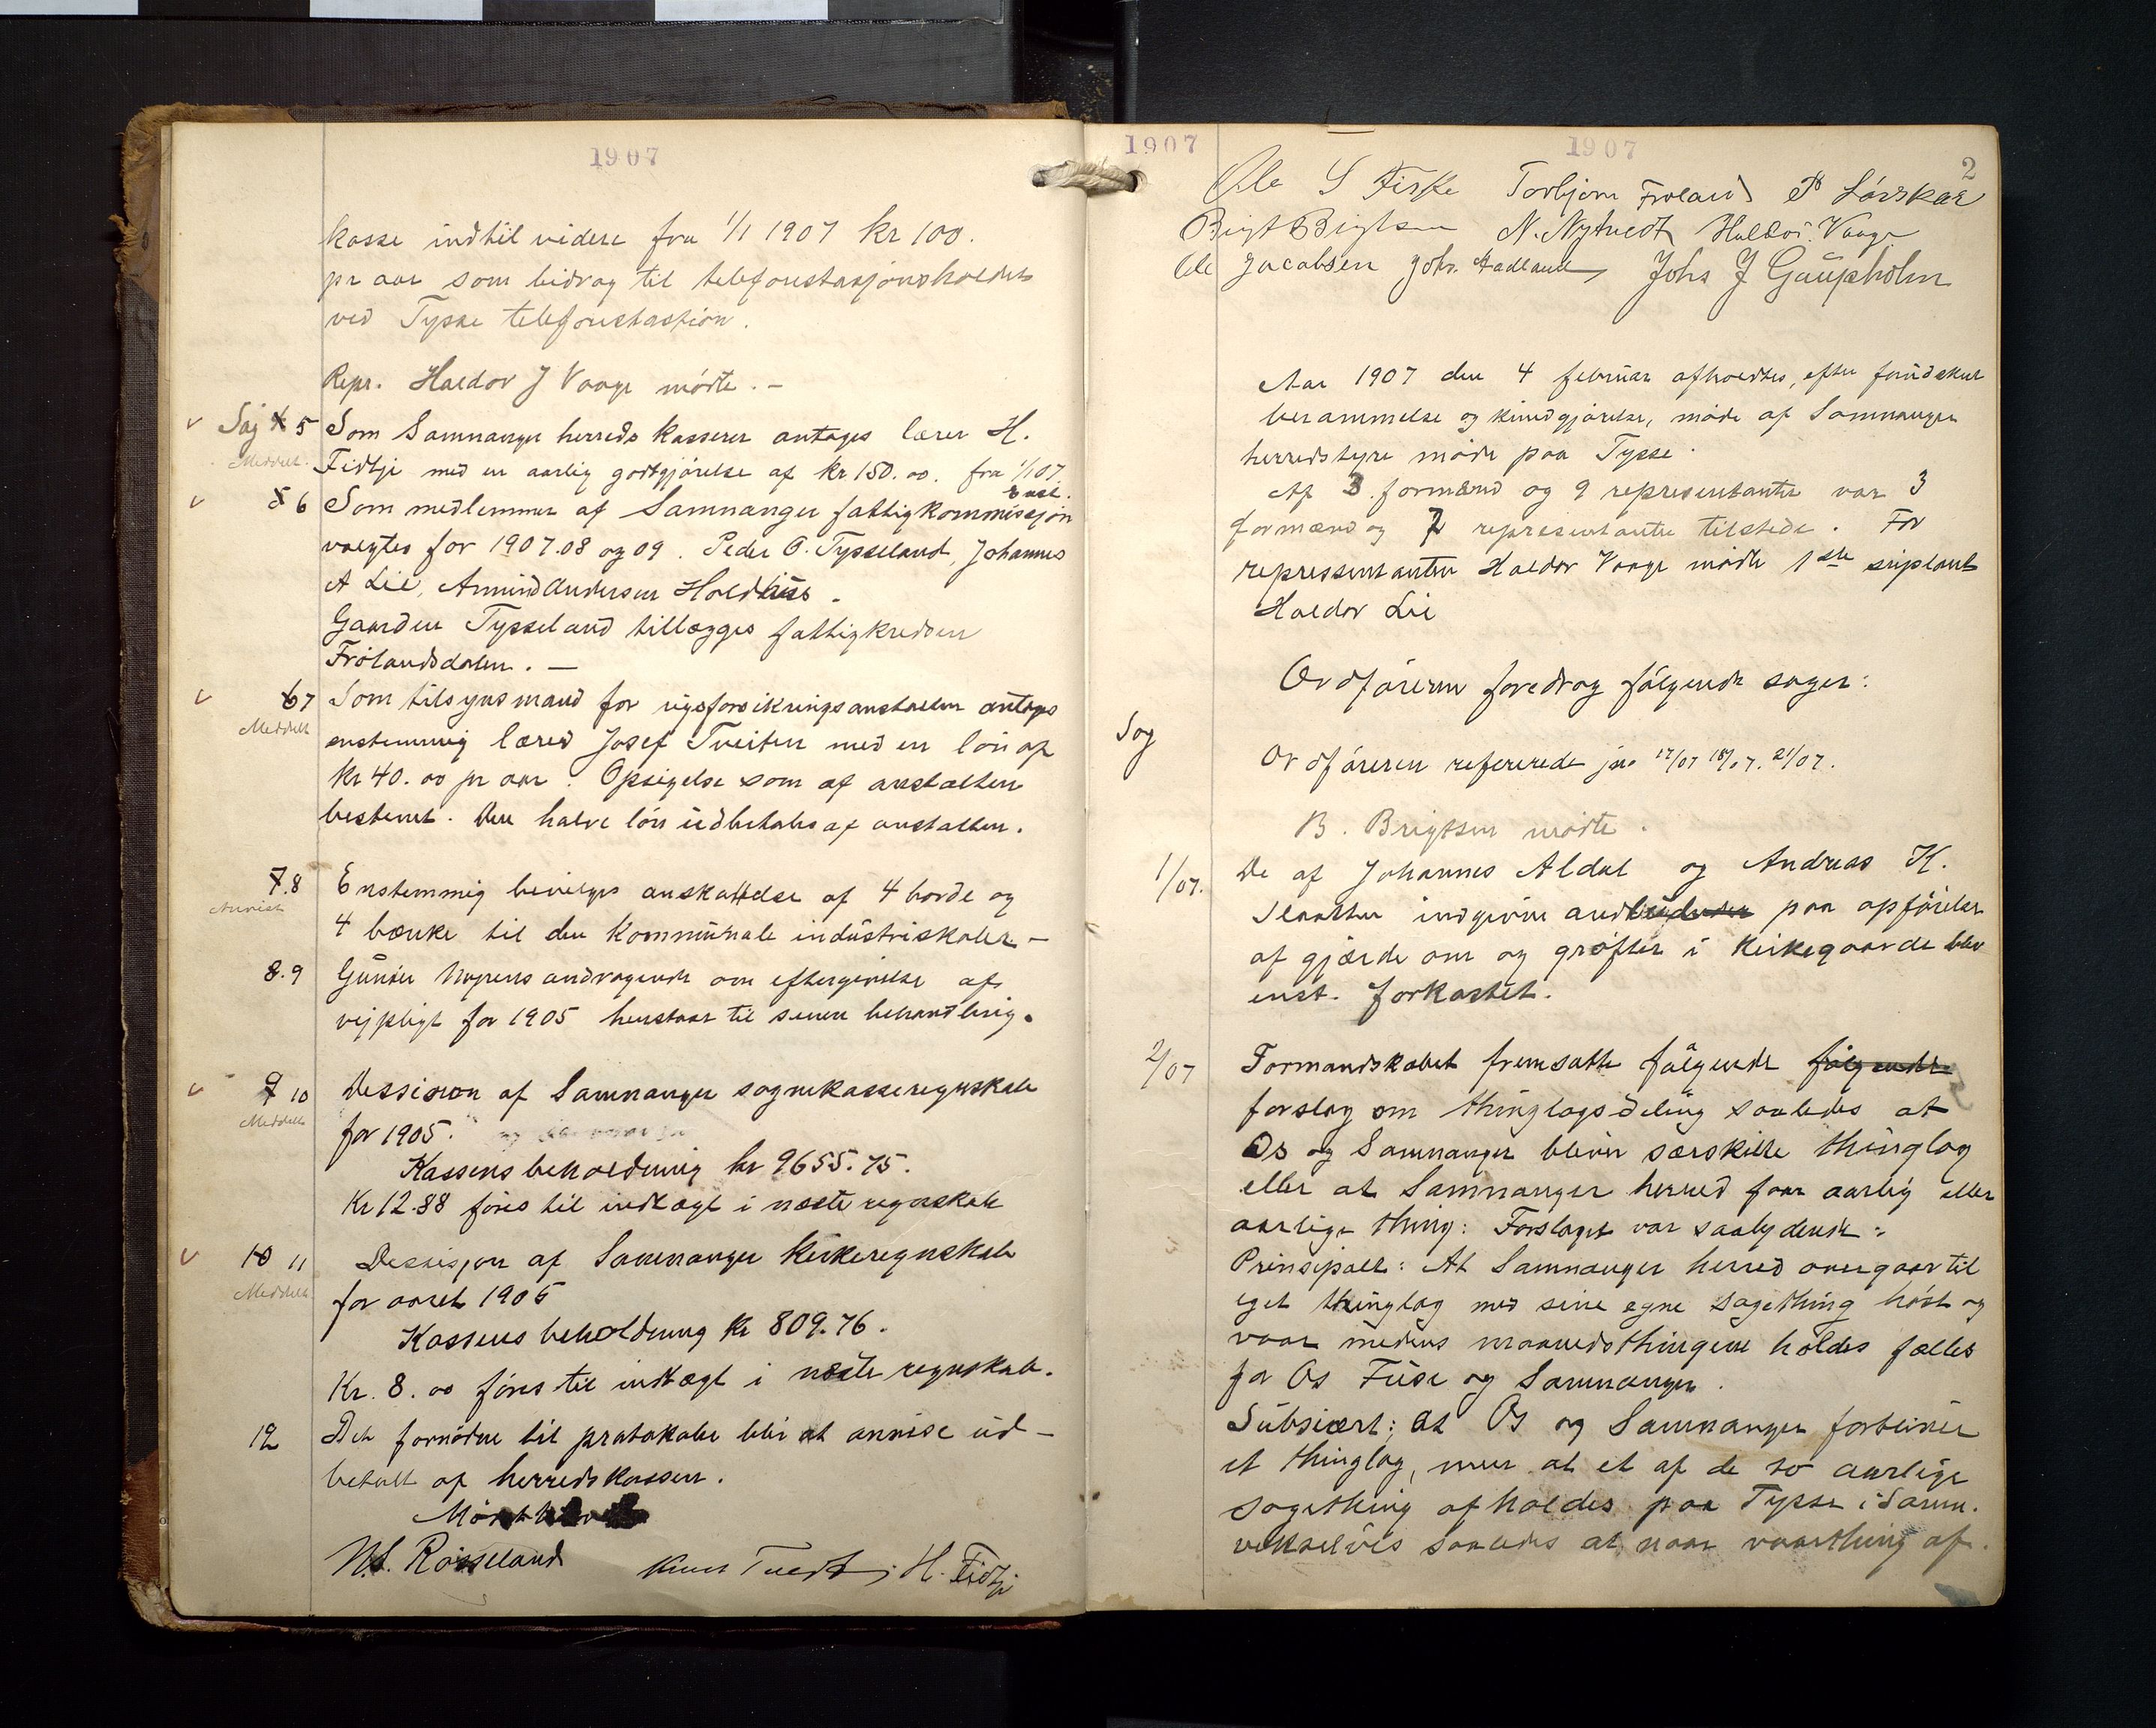 1907
kasse indtil videre fra 1/1 1907 kr 100.
pr aar som bidrag til telefonstasjonsholdet
ved Tysse telefonstastion.
Repr. Haldor J Vaage mödte. -
Sag 4 5 Som Samnanger herreds kasserer antages lærer H.
Meddelt. Fidtje med en aarlig godtgjörelse af kr 150.00. fra 1/1 07.
Enst.
5 6 Som medlemmer af Samnanger fattigkommissjon
valgtes for 1907.08 og 09. Peder O. Tysseland, Johannes
A Lie, Amund Andersen Holdhus.
Gaarden Tysseland tillægges fattigkredsen
Frölandsdalen. -
6 7 Som tilsynsmand for rigsforsikringsanstalten antages
Meddelt enstemmig lærer Josef Tveiten med en lön af
kr 40.00 pr aar. Opsigelse som af anstalten
bestemt. Den halve lön udbetales af anstalten.
7.8 Enstemmig bevilges anskaffelse af 4 borde og
Anvist 4 bænke til den kommunale industriskole -
8.9 andragende om eftergivelse af
vejpligt for 1905 henstaar til senere behandling.
9 10 Dessision af Samnanger sognekasseregnskab
Meddelt for 1905.
Kassens beholdning kr 9655.75.
Kr 12.88 föres til indtægt i næste regnskab
10 11 Dessisjon af Samnanger kirkeregnskab
Meddelt for aaret 1905
Kassens beholdning kr 809.76.
Kr. 8.00 föres til indtægt i næste regnskab.
12 Det fornödne til protokoller blir at anvise ud-
betalt af herredskassen.
Mödet
N.S. Rösseland Knut Tvedt H. Fidtje
1907
1907
2
Ole S Fiske Torbjörn Froland P Lönskar
Brigt Brigtsen N. Nytvedt Haldor Vaage
Ole Jacobsen Johs. Aadland Johs J Gaupholm
Aar 1907 den 4 februar afholdtes, efter forudskut
berammelse og kundgjörelse, möde af Samnanger
herredstyre möde paa Tysse.
Af 3 formænd og 9 representanter var 3
formænd og 7 representanter tilstede. For
repressentanten Haldor Vaage mödte 1ste supleant
Haldor Lie
Ordföreren foredrog fölgende sager:
Sag
Ordföreren refererede jno 17/07 18/07. 21/07.
B. Brigtsen mödte.
1/07. De af Johannes Aldal og Andreas K.
indgivne paa opförelse
af gjærde om og gröfter i kirkegaarde blev
enst. forkastet.
2/07 Formandskabet fremsatte fölgende fölgende
forslag om thinglagsdeling saaledes at
Os og Samnanger bliver særskilte thinglag
eller at Samnanger herred faar aarlig eller
aarlige thing: Forslaget var saalydende:
Prinsipalt: At Samnanger herred overgaar til
eget thinglag med sine egne sagething höst og
vaar medens maanedsthingene holdes fælles
for Os Fuse og Samnanger.
Subsiært: at Os og Samnanger forbliver
et thinglag, men at et af de to aarlige
sagething afholdes paa Tysse i Samn.
vekselvis saaledes at naar vaarthing af.